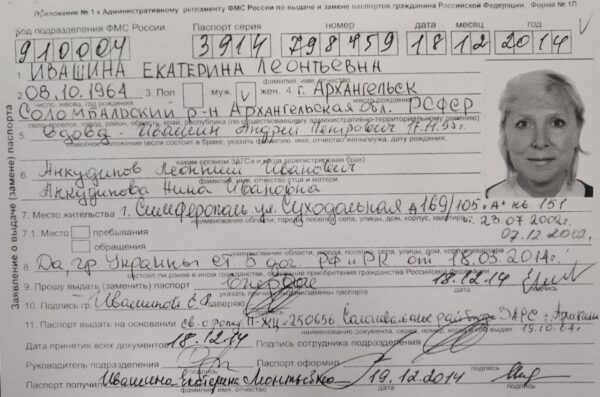 Приложение № 1 к Административному регламенту ФМС России по выдаче и замене паспортов гражданина Российской Федерации. Форма № 1П
код подразделения ФМС России Паспорт серия номер дата месяц год
910004 3914 798459 18 12 2014
1. ИВАШИНА ЕКАТЕРИНА ЛЕОНТЬЕВНА
фамилия, имя, отчество
2. 08.10.1964 3. Пол муж. V жен. 4. г. Архангельск
число, месяц, год рождения место рождения
Соломбальский р-н Архангельская обл. РСФСР
5. Вдова - Ивашин Андрей Петрович 17.11.95г.
6. Анкудинов Леонтий Иванович
Анкудинова Нина Ивановна
фамилия, имя, отчество отца и матери
7. Место жительства г. Симферополь ул. Суходольная д 169/105 "А" кв. 151
с 23.07.2002г.
7.1. Место пребывания
07.12.2002
обращения
8. Да, гр. Украины ст. 5 дог. РФ и РК от 18.03.2014г.
состоял ли ранее в иностранном гражданстве, дата принятия гражданства Российской Федерации
9. Прошу выдать (заменить) паспорт 18.12.14
10. Подпись гр. Ивашиной Е.Л. заверяю
11. Паспорт выдать на основании св. о рожд П-ЖЦ № 250656
наименование документа, серия, номер, когда и кем выдан
Дата принятия всех документов 18.12.14 Подпись сотрудника подразделения
Руководитель подразделения Паспорт оформил
подпись подпись
Паспорт получил Ивашина Екатерина Леонтьевна 19.12.2014
подпись
Заявление о выдаче (замене) паспорта